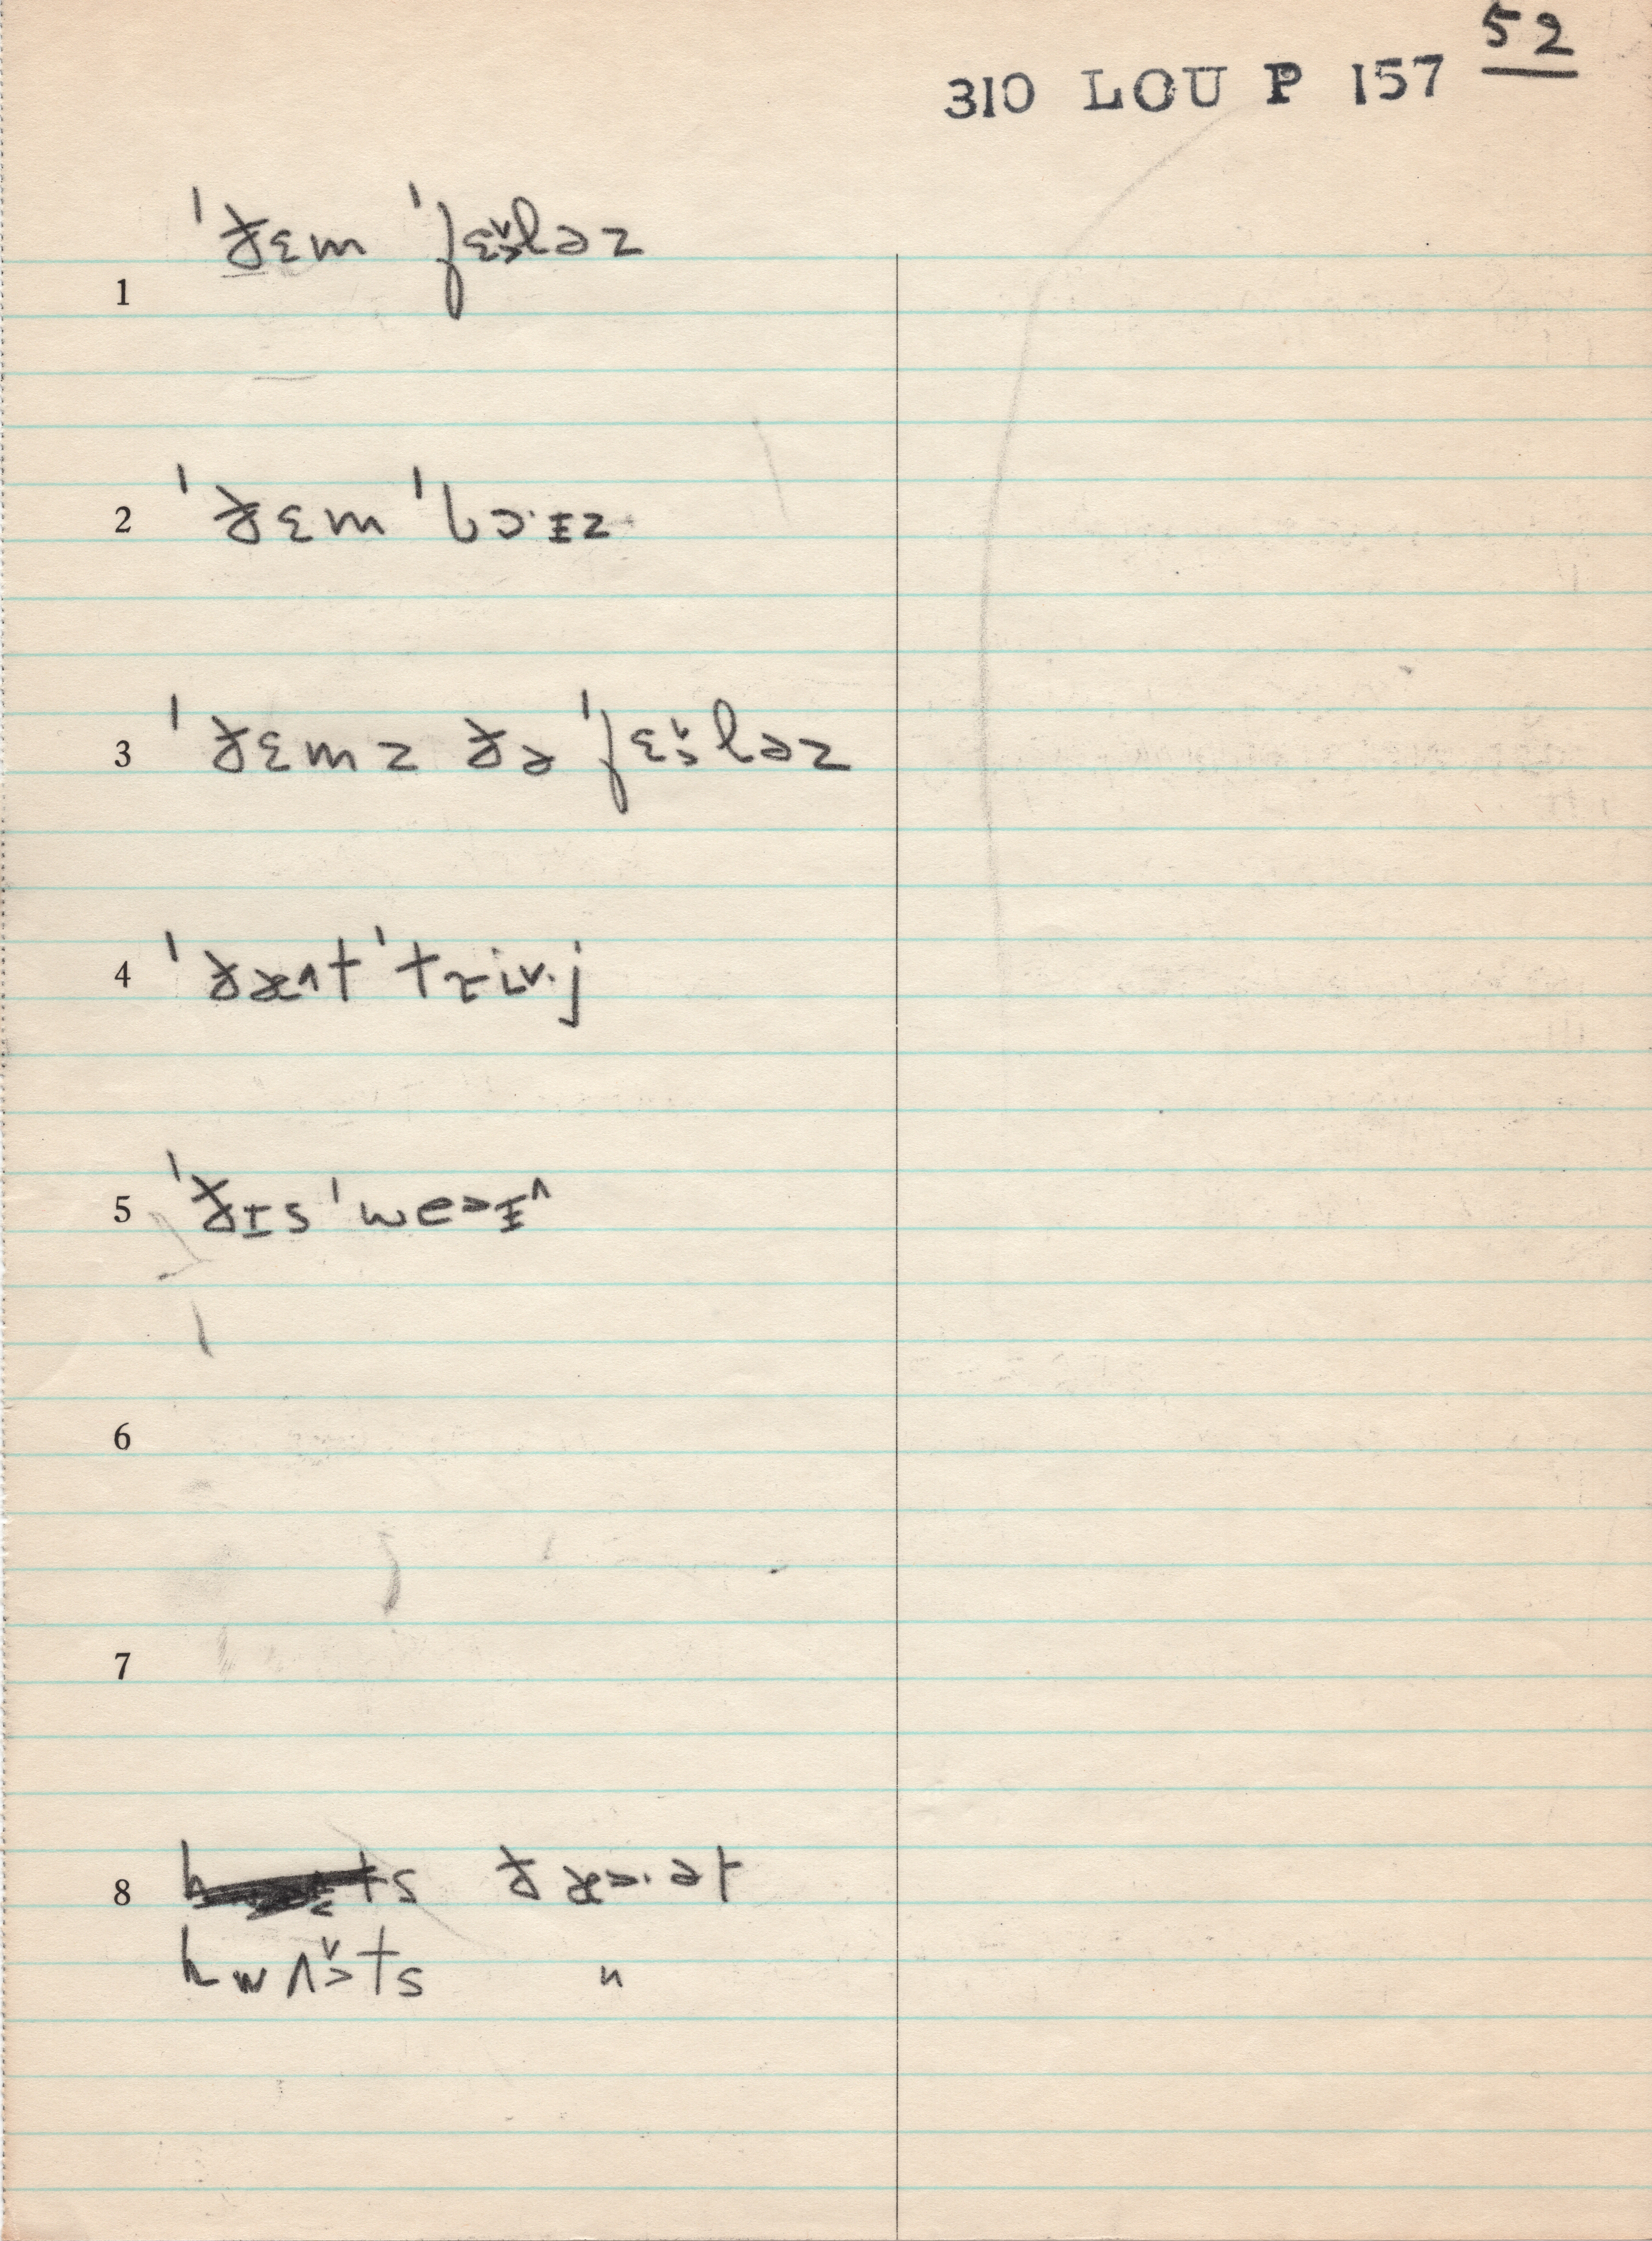 52
310 LOU P 157
1 ˈðɛm ˈfɛ˅˃ləz
2 ˈðɛm ˈbɔ·ɪz
3 ˈðɛmz ðə ˈfɛ˅˃ləz
4 ˈðæ^t ˈtɹi˅·j
5 ˈðɪs ˈwe˃ɪ^
6
7
8 ts ðæ˃·ət
hwʌ˅˃ts "